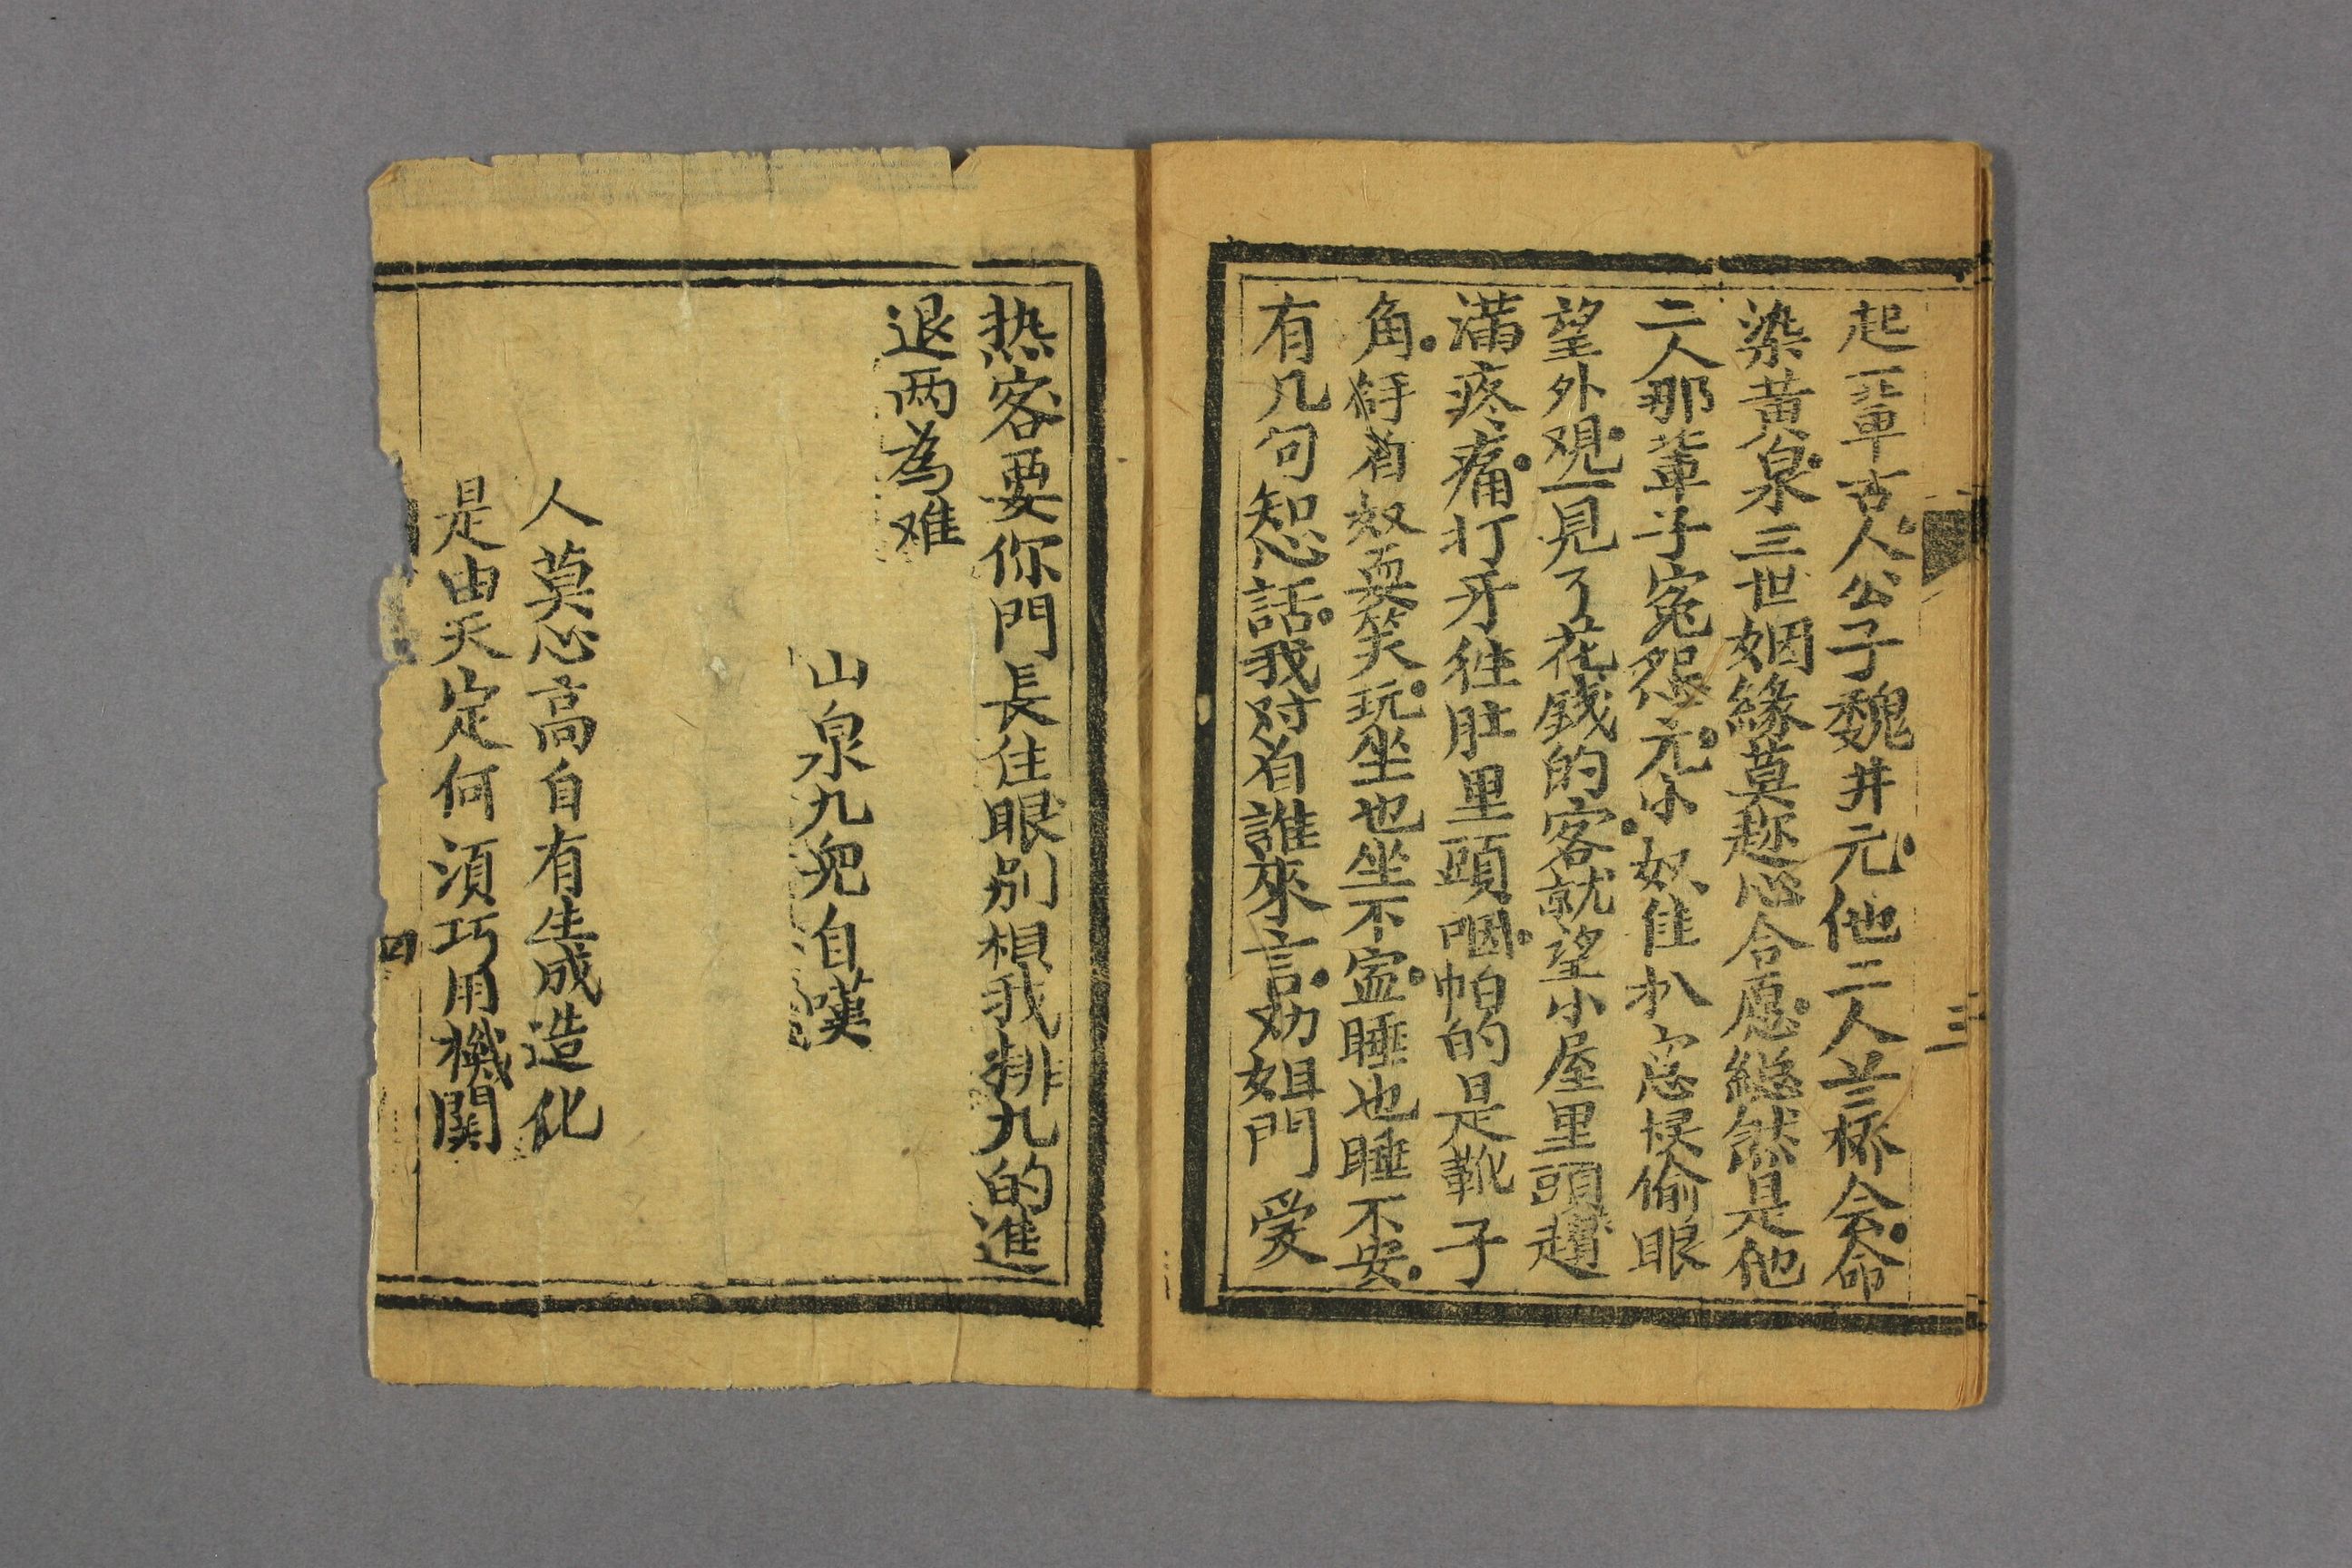 起一輩古人公子魏井元他二人芸桥会命
染黄泉三世姻緣莫趂心合愿継然是他
二人那輩子寃怨元尔奴隹扒窓候偷眼
望外观一見了花錢的客就望小屋里頭趲
满疼痛打牙徃肚里頭咽帕的是靴子
角奴耍笑玩坐也坐不寍睡也睡不安
有几句知心話我对着誰來言劝姐門爱
三
热客要你門長住眼别想我排九的進
退两為难
山泉九兜自嘆
人莫心高自有生成造化
是由天定何須巧用機関
四